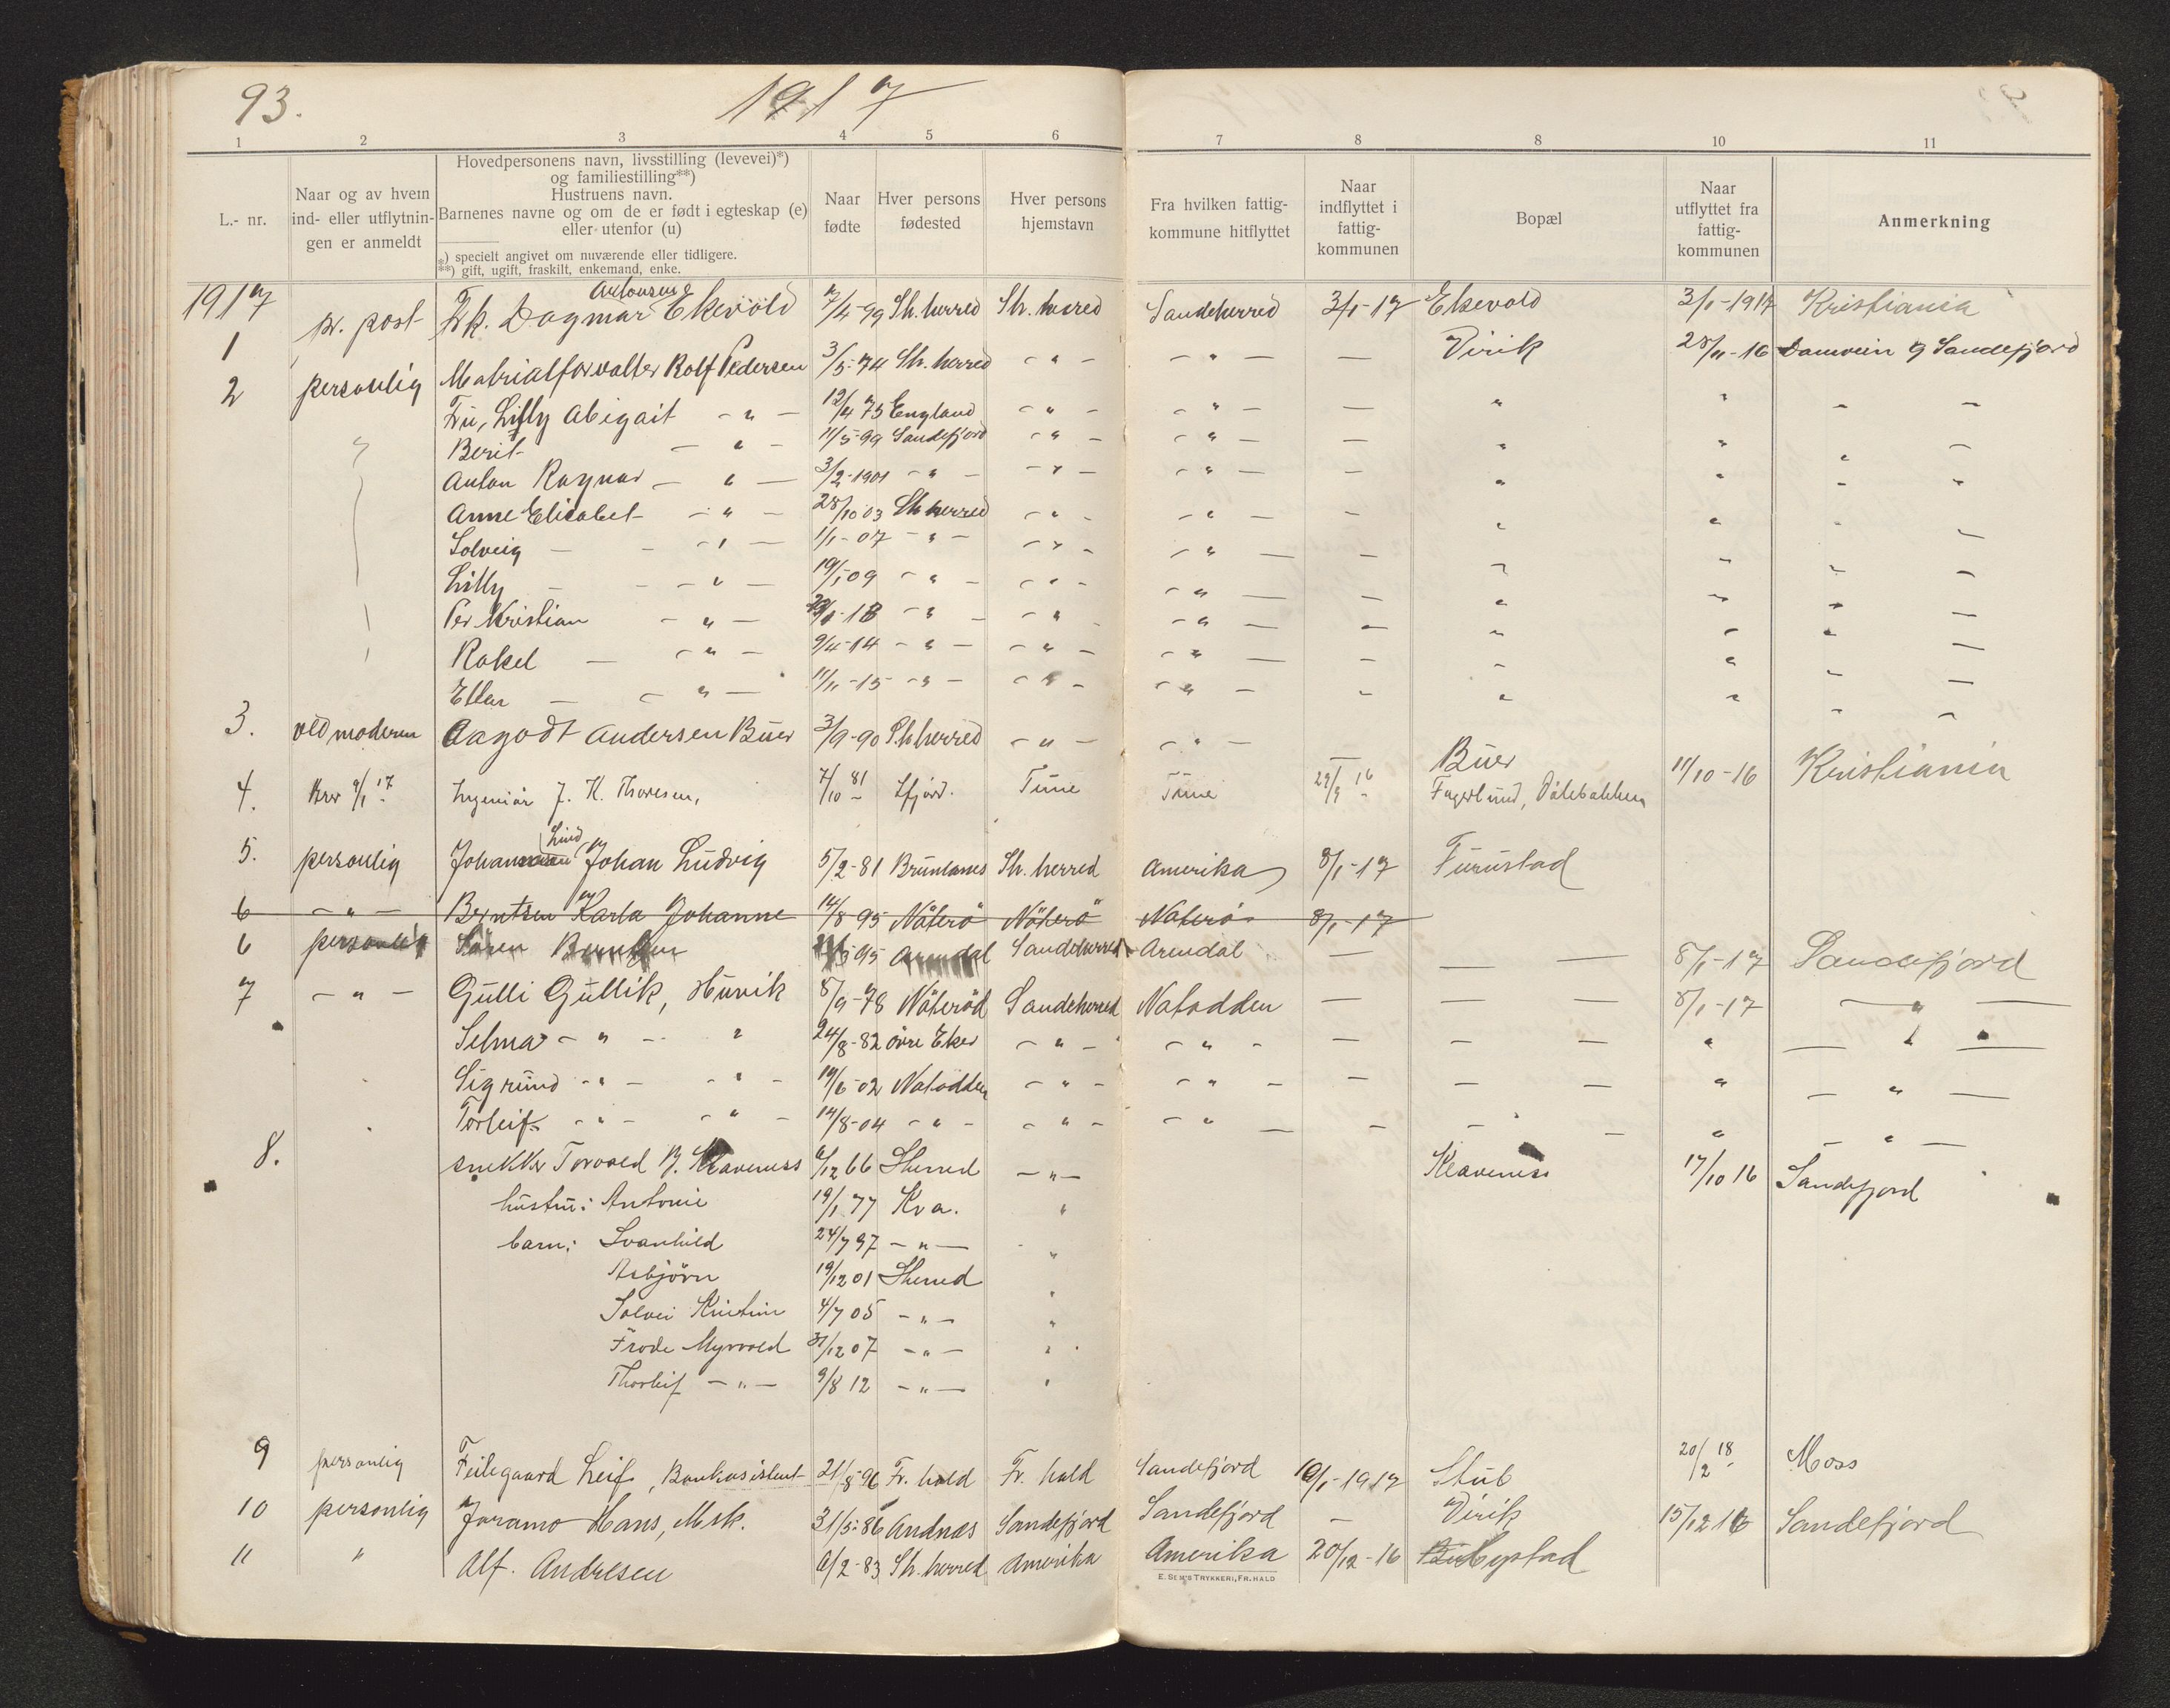 93.
1917
1 2 3 4 5 6 7 8 8 10 11
L.- nr.
Naar og av hvem
ind- eller utflytnin-
gen er anmeldt
Hovedpersonens navn, livsstilling (levevei)*)
og familiestilling**)
Hustruens navn.
Barnenes navne og om de er født i egteskap (e)
eller utenfor (u)
*) specielt angivet om nuværende eller tidligere.
**) gift, ugift, fraskilt, enkemand, enke.
Naar
fødte
Hver persons
fødested
Hver persons
hjemstavn
Fra hvilken fattig-
kommune hitflyttet
Naar
indflyttet i
fattig-
kommunen
Bopæl
Naar
utflyttet fra
fattig-
kommunen
Anmerkning
1917
Antonsens
1 pr. post Frk. Dagmar Ekevold 7/4-99 Sh. herred Sh. herred Sandeherred 3/1-17 Ekevold 3/1-1917 Kristiania
2 personlig Matrialforvalter Rolf Pedersen 3/5-74 Sh. herred - " - - " - — Virik 28/11-16 Sandefjord
Fru, Lilly Abigait - " - 12/4 75 England - " - - " - — " "
Berit - " - 11/5-99 Sandefjord - " - - " - — " "
Anton Ragnar - " - 3/2-1901 - " - - " - - " - — " "
Anne Elisabet - " - 28/10 03 Sh herred - " - - " - — " "
Solveig - " - 1/1-07 - " - - " - - " - — " "
Lilly - " - 19/1 09 - " - - " - - " - — " "
Per Kristian - " - - " - - " - - " - — " "
Rakel - " - 9/4-14 - " - - " - - " - — " "
Ellen - " - 11/11-15 - " - - " - - " - — " "
3. ved moderen Aagodt Andersen Buer 3/9-90 Sh herred - " - - " - — Buer 11/10-16 Kristiania
4. Brev 9/1 17 Ingeniör J. K. Thoresen, 7/10 81 Sfjord. Tune Tune 29/9 16 Fagerlund,
Lind
5. personlig Johannesen Johan Ludvig 5/2-81 Brunlanes Sh. herred Amerika 8/1-17 Furustad
6 - " - Berntsen Karla Johanne 14/8 95 Nöterö Nöterö Noterö 8/1-17
6 personlig Sören Berntsen 95 Arendal Sandeherred Arendal — — — 8/1-17 Sandefjord
7 - " - Gulli Gullik, Huvik 8/9-78 Nöteröd Sandeherred Notodden — — — 8/1-17 — " —
Selma - " - " 24/8-82 övre Eker - " - - " - — — — " — " —
Sigrund - " - - " - 19/6-02 Notodden - " - - " - — — — " — " —
Torleif - " - - " - 14/8-04 - " - - " - - " - — — — " — " —
8. snekker Torvald B. Klaveness 6/12 66 Sherred - " - Klaveness 17/10 16 Sandefjord
hustru: Antonie 19/1 77 Kva. "
barn: Svanhild 24/7 97 - " - "
Asbjörn 19/12 01 Sherred "
Solvei Kristine 4/7 05 - " - "
Frode Myrvold 31/12 07 - " - "
Thorleif - " - 9/8 12 - " - "
9 personlig Feilegaard Leif, Bankasistent 21/8-96 Fr. hald Fr. hald Sandefjord 10/1-1917 Stub 20/2 18 Moss
10 personlig Joramo Hans, Msk. 31/5-86 Andnæs Sandefjord Sandefjord — Virik 15/12 16 Sandefjord
11 " Alf. Andresen 6/2-83 Sh. herred Amerika Amerika 20/12-16
E. SEM'S TRYKKERI, FR.HALD